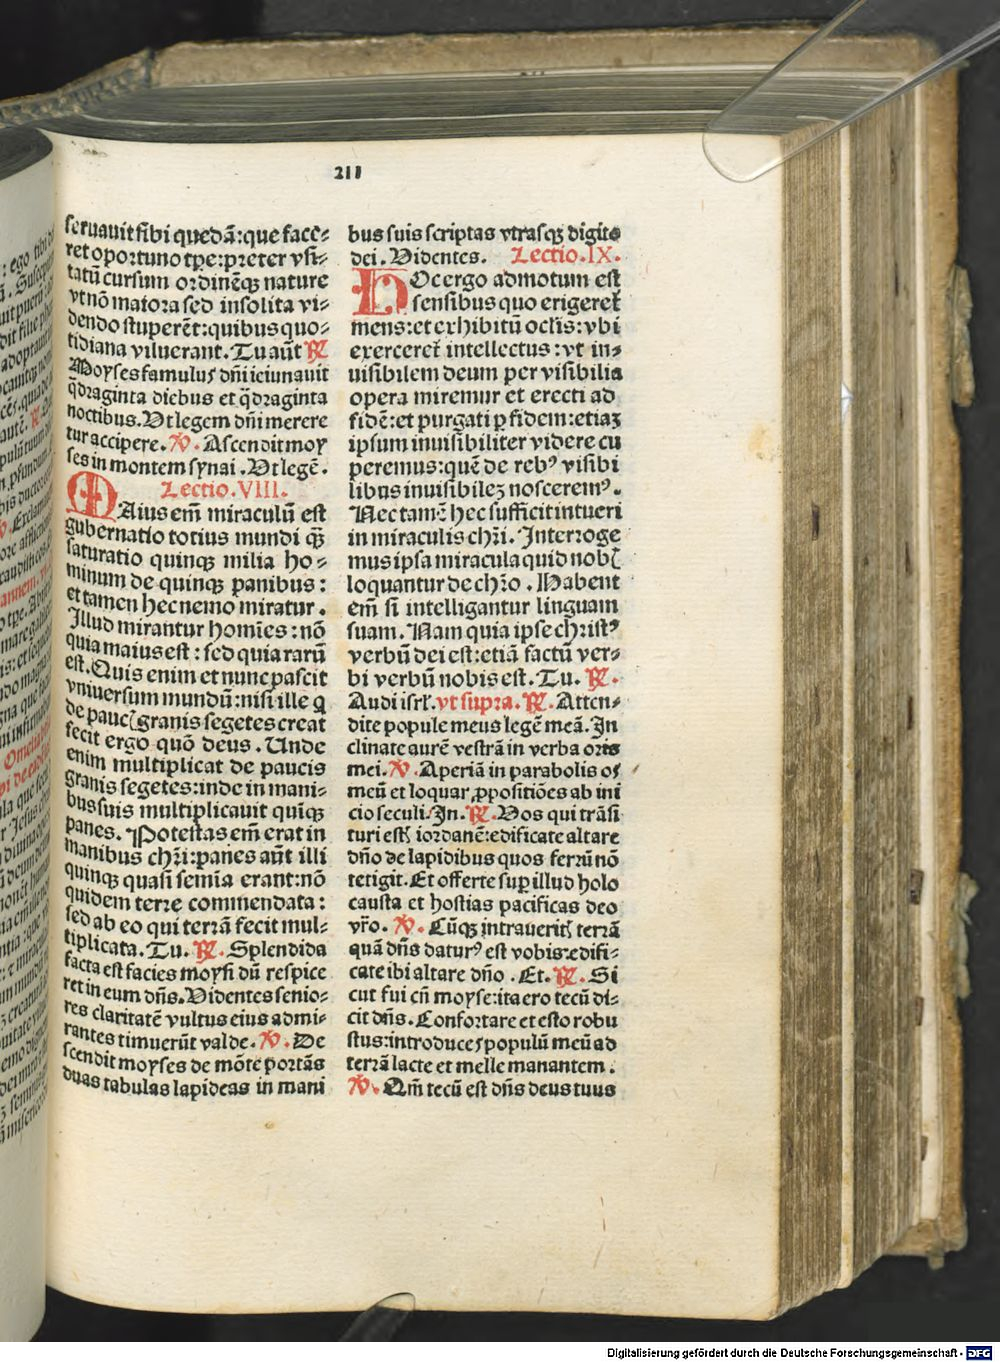 211
seruauit sibi quedā:que face⸗
ret oportuno tpe:preter vsi⸗
tatū cursum ordinēqꝫ nature
vt nō maiora sed insolita vi⸗
dendo stuperēt:quibus quo⸗
tidiana viluerant. Tu aūt ℟
Moyses famulus dn̄i ieiunauit
q̄draginta diebus et q̄draginta
noctibus. Vt legem dn̄i merere
tur accipere. ℣. Ascendit moy
ses in montem synai. Vt legē.
Lectio.VIII.
MAius em̄ miraculū est
gubernatio totius mundi qꝫ̄
saturatio quinqꝫ milia ho⸗
minum de quinqꝫ panibus:
et tamen hec nemo miratur.
Illud mirantur homīes: nō
quia maius est: sed quia rarū
est. Quis enim et nunc pascit
vniuersum mundū:nisi ille q
de paucꝭ granis segetes creat
fecit ergo quō deus. Unde
enim multiplicat de paucis
granis segetes:inde in mani⸗
bus suis multiplicauit quīqꝫ
panes. Potestas em̄ erat in
manibus chr̄i:panes aūt illi
quinqꝫ quasi semīa erant:nō
quidem terre commendata:
sed ab eo qui terrā fecit mul⸗
tiplicata. Tu. ℟. Splendida
facta est facies moysi dū respice
ret in eum dn̄s. Videntes senio⸗
res claritatē vultus eius admi⸗
rantes timuerūt valde. ℣. De
scendit moyses de mōte portās
duas tabulas lapideas in mani
bus suis scriptas vtrasqꝫ digito
dei. Videntes. Lectio.IX.
HOc ergo admotum est
sensibus quo erigeret̄
mens:et exhibitū oclīs:vbi
exerceret̄ intellectus: vt in⸗
uisibilem deum per visibilia
opera miremur et erecti ad
fidē:et purgati ꝑ fidem:etiaꝫ
ipsum inuisibiliter videre cu
peremus:quē de rebꝰ visibi
libus inuisibileꝫ nosceremꝰ.
Nec tamē hec sufficit intueri
in miraculis chr̄i. Interroge
mus ipsa miracula quid nobꝭ
loquantur de chr̄o. Habent
em̄ si intelligantur linguam
suam. Nam quia ipse christꝰ
verbū dei est:etiā factū ver⸗
bi verbū nobis est. Tu. ℟.
Audi isrl̄. vt supra. ℟. Atten⸗
dite popule meus legē meā. In
clinate aurē vestrā in verba oris
mei. ℣. Aperiā in parabolis os
meū et loquar ꝓpositiōes ab ini
cio seculi. In. ℟. Vos qui trāsi
turi estꝭ iordanē:edificate altare
dn̄o de lapidibus quos ferrū nō
tetigit. Et offerte suꝑ illud holo
causta et hostias pacificas deo
vr̄o. ℣. Cūqꝫ intraueritꝭ terrā
quā dn̄s daturꝰ est vobis:edifi⸗
cate ibi altare dn̄o. Et. ℟. Si
cut fui cū moyse:ita ero tecū di⸗
cit dn̄s. Confortare et esto robu
stus:introduces populū meū ad
terrā lacte et melle manantem.
℣. Qm̄ tecū est dn̄s deus tuus
Digitalisierung gefördert durch die Deutsche Forschungsgemeinschaft - DFG